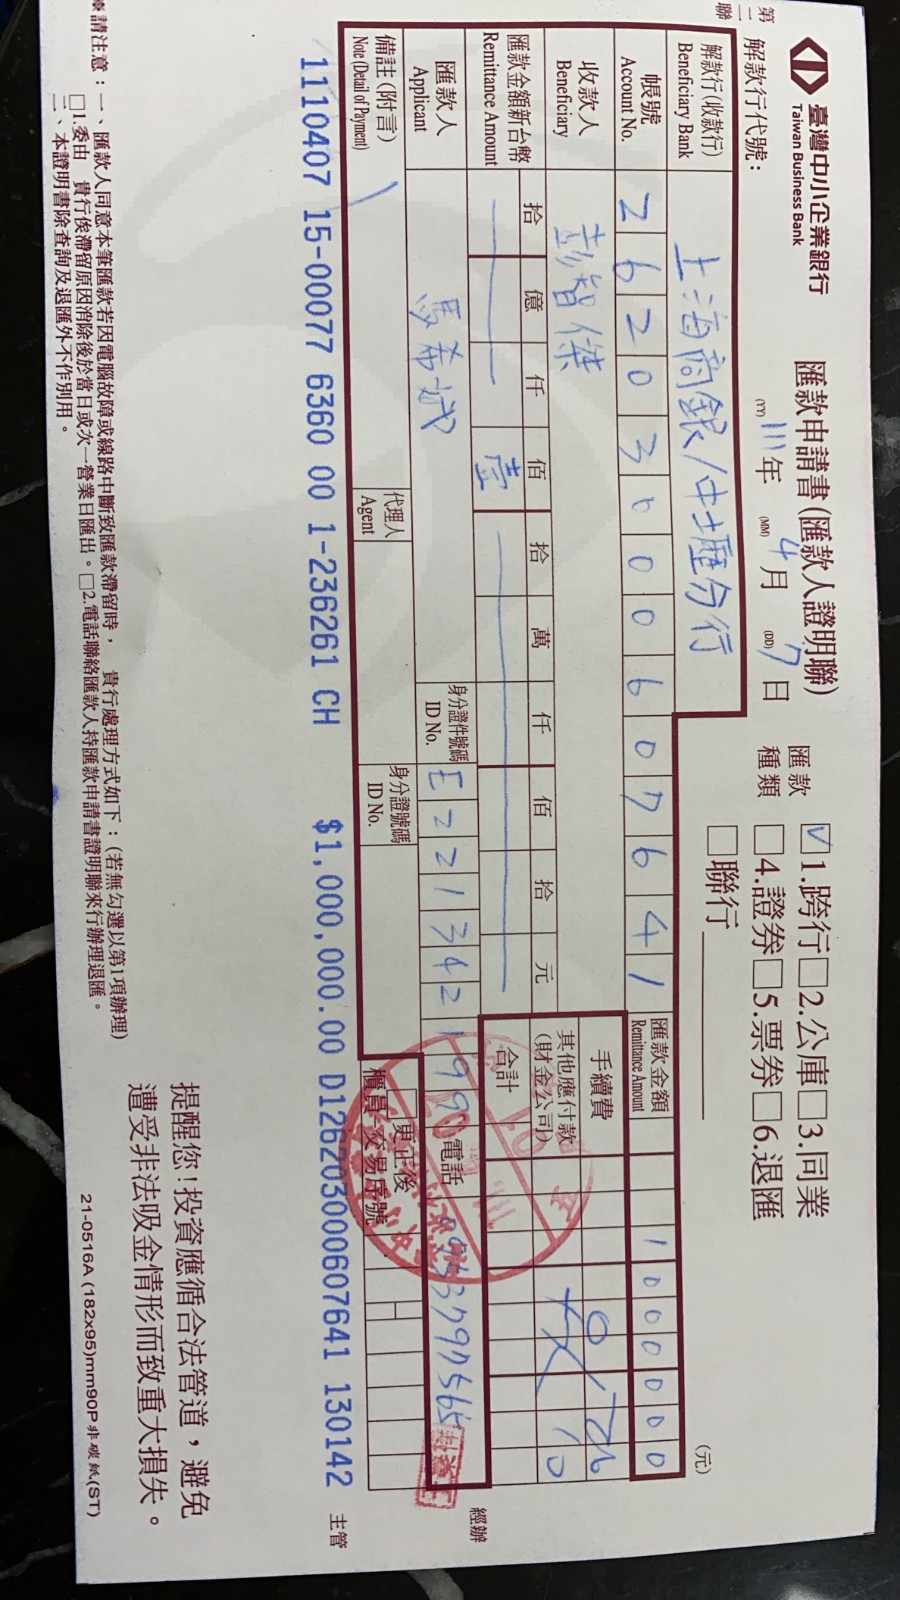 第二聯
臺灣中小企業銀行
Taiwan Business Bank
匯款申請書(匯款人證明聯)
解款行代號：
(YY) 111年 (MM) 4月 (DD) 7日
匯款種類
☑1.跨行□2.公庫□3.同業
□4.證券□5.票券□6.退匯
□聯行
(元)
解款行(收款行)
Beneficiary Bank
上海商銀/中壢分行
帳號
Account No.
26203000607641
匯款金額
Remittance Amount
1000000
收款人
Beneficiary
彭智傑
手續費
其他應付款
(財金公司)
10
合計
匯款金額新台幣
Remittance Amount
拾 億 仟 佰 拾 萬 仟 佰 拾 元
壹
匯款人
Applicant
身分證件號碼
ID No.
E221342199
電話
備註(附言)
Note (Detail of Payment)
代理人
Agent
身分證號碼
ID No.
□更正後
櫃員 交易序號
經辦
主管
1110407 15-00077 6360 00 1-236261 CH $1,000,000.00 D126203000607641 130142
請注意：一、匯款人同意本筆匯款若因電腦故障或線路中斷致匯款滯留時，貴行處理方式如下：(若無勾選以第1項辦理)
□1.委由 貴行俟滯留原因消除後於當日或次一營業日匯出。□2.電話聯絡匯款人持匯款申請書證明聯來行辦理退匯。
二、本證明書除查詢及退匯外不作別用。
提醒您!投資應循合法管道，避免
遭受非法吸金情形而致重大損失。
21-0516A (182x95)mm90P非碳紙(ST)